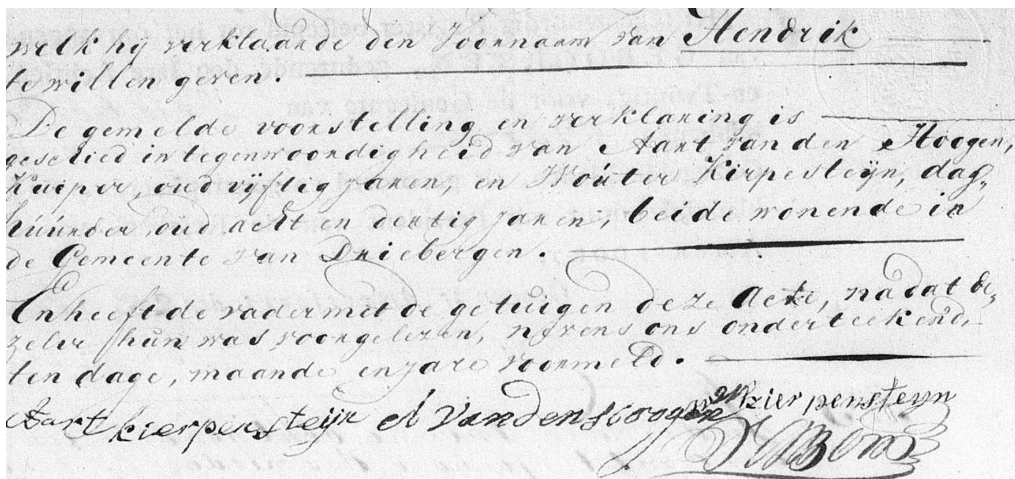 welk hy verklaarde den Voornaam van Hendrik
te willen geven.
De gemelde voorstelling en verklaring is
geschied in tegenwoordigheid van Aart van den Hoogen,
Kuiper, oud vyftig jaren, en Wouter Kirpesteijn, dag-
húúrder, oud acht en dertig jaren, beide wonende in
de Gemeente van Driebergen.
En heeft de vader met de getuigen deze Acte, na dat de-
zelve hun was voorgelezen, nevens ons onderteekend,
ten dage, maande en jare voormeld.
Aart kierpensteijn A van den Hoogen W kierpensteyn